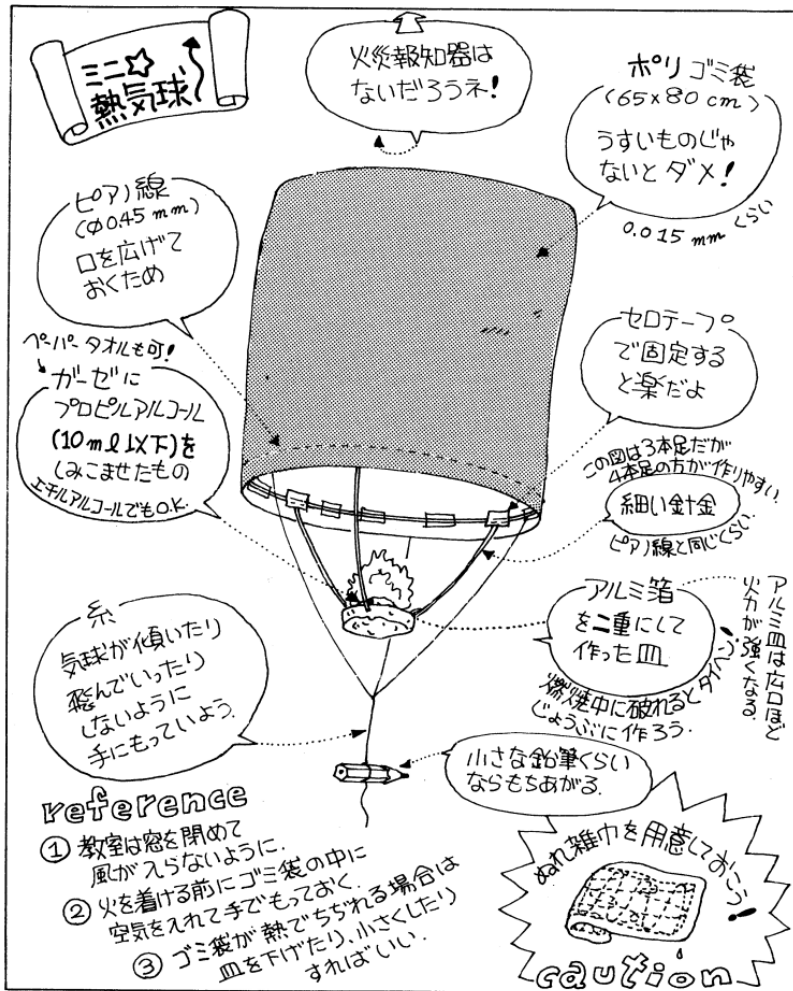 ミニ☆
熱気球
火災報知器は
ないだろうネ!
ポリゴミ袋
(65×80cm)
うすいものじゃ
ないとダメ!
0.015mmくらい
ピアノ線
(φ0.45mm)
口を広げて
おくため
ペーパータオルも可!
ガーゼに
プロピルアルコール
(10mℓ以下)を
しみこませたもの
エチルアルコールでもO.K.
セロテープ
で固定する
と楽だよ
この図は3本足だが
4本足の方が作りやすい.
細い針金
ピアノ線と同じくらい.
アルミ箔
を二重にして
作った皿
燃焼中に破れるとタイヘン!
じょうぶに作ろう.
アルミ皿は広口ほど
火力が強くなる.
糸
気球が傾いたり
飛んでいったり
しないように
手にもっていよう.
小さな鉛筆くらい
ならもちあがる.
reference
① 教室は窓を閉めて
風が入らないように.
② 火を着ける前にゴミ袋の中に
空気を入れて手でもっておく.
③ ゴミ袋が熱でちぢれる場合は
皿を下げたり、小さくしたり
すればいい.
ぬれ雑巾を用意しておこう!
caution